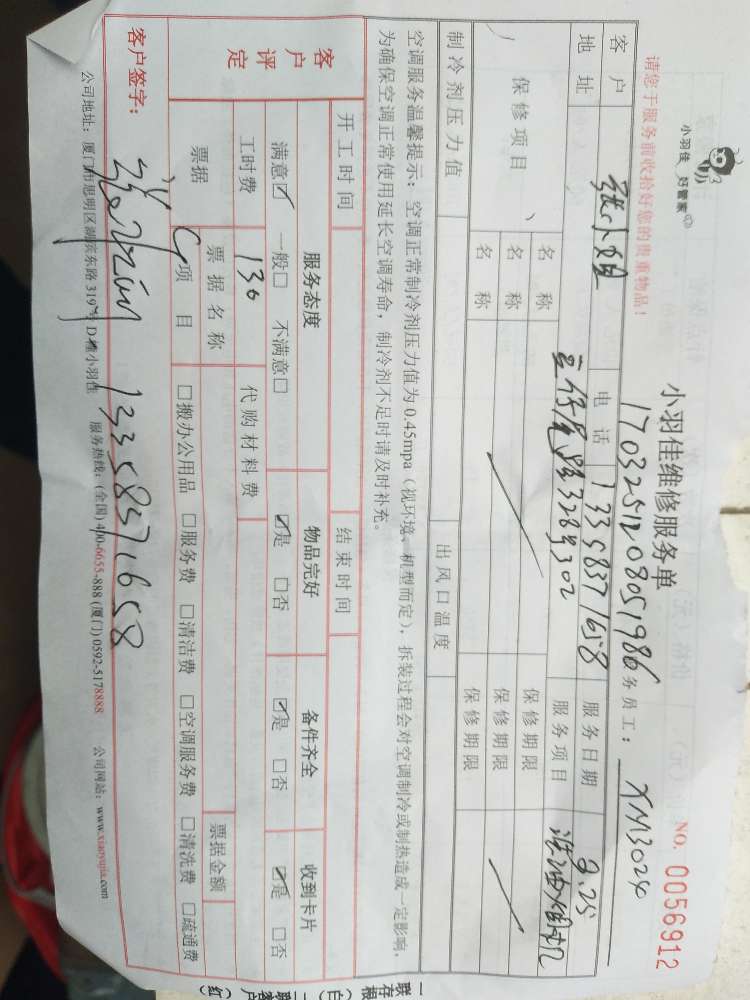 小羽佳 好管家
小羽佳维修服务单
NO. 0056912
请您于服务前收拾好您的贵重物品！
1703251208051986 务员工： XM3024
客户 张小姐 电话 13358371658 服务日期 9.25
地址 328号302 服务项目 洗油烟机
保修项目 名称 保修期限
名称 保修期限
名称 保修期限
制冷剂压力值 出风口温度
空调服务温馨提示：空调正常制冷剂压力值为0.45mpa（视环境、机型而定），拆装过程会对空调制冷或制热造成一定影响，
为确保空调正常使用延长空调寿命，制冷剂不足时请及时补充。
开工时间 结束时间
客户评定 服务态度 物品完好 备件齐全 收到卡片
满意☑ 一般□ 不满意□ ☑是 □否 ☑是 □否 ☑是 □否
工时费 130 代购材料费
票据 票据名称 票据金额
项目 □搬办公用品 □服务费 □清洁费 □空调服务费 □清洗费 □疏通费
客户签字： 13358371658
公司地址：厦门市思明区湖滨东路319号D栋小羽佳 服务热线：(全国) 400-6655-888 (厦门) 0592-5178888 公司网站：www.xiaoyujia.com
一联存根(白) 二联客户(红)